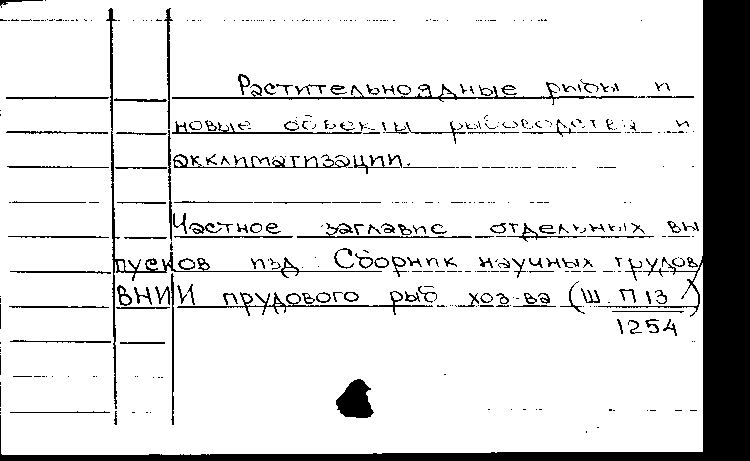 Растительноядные рыбы и
новые объекты рыбоводства и
акклиматизации.
Частное заглавие отдельных вы
пусков изд. Сборник научных трудов
ВНИИ прудового рыб хоз-ва (Ш П13/1254)